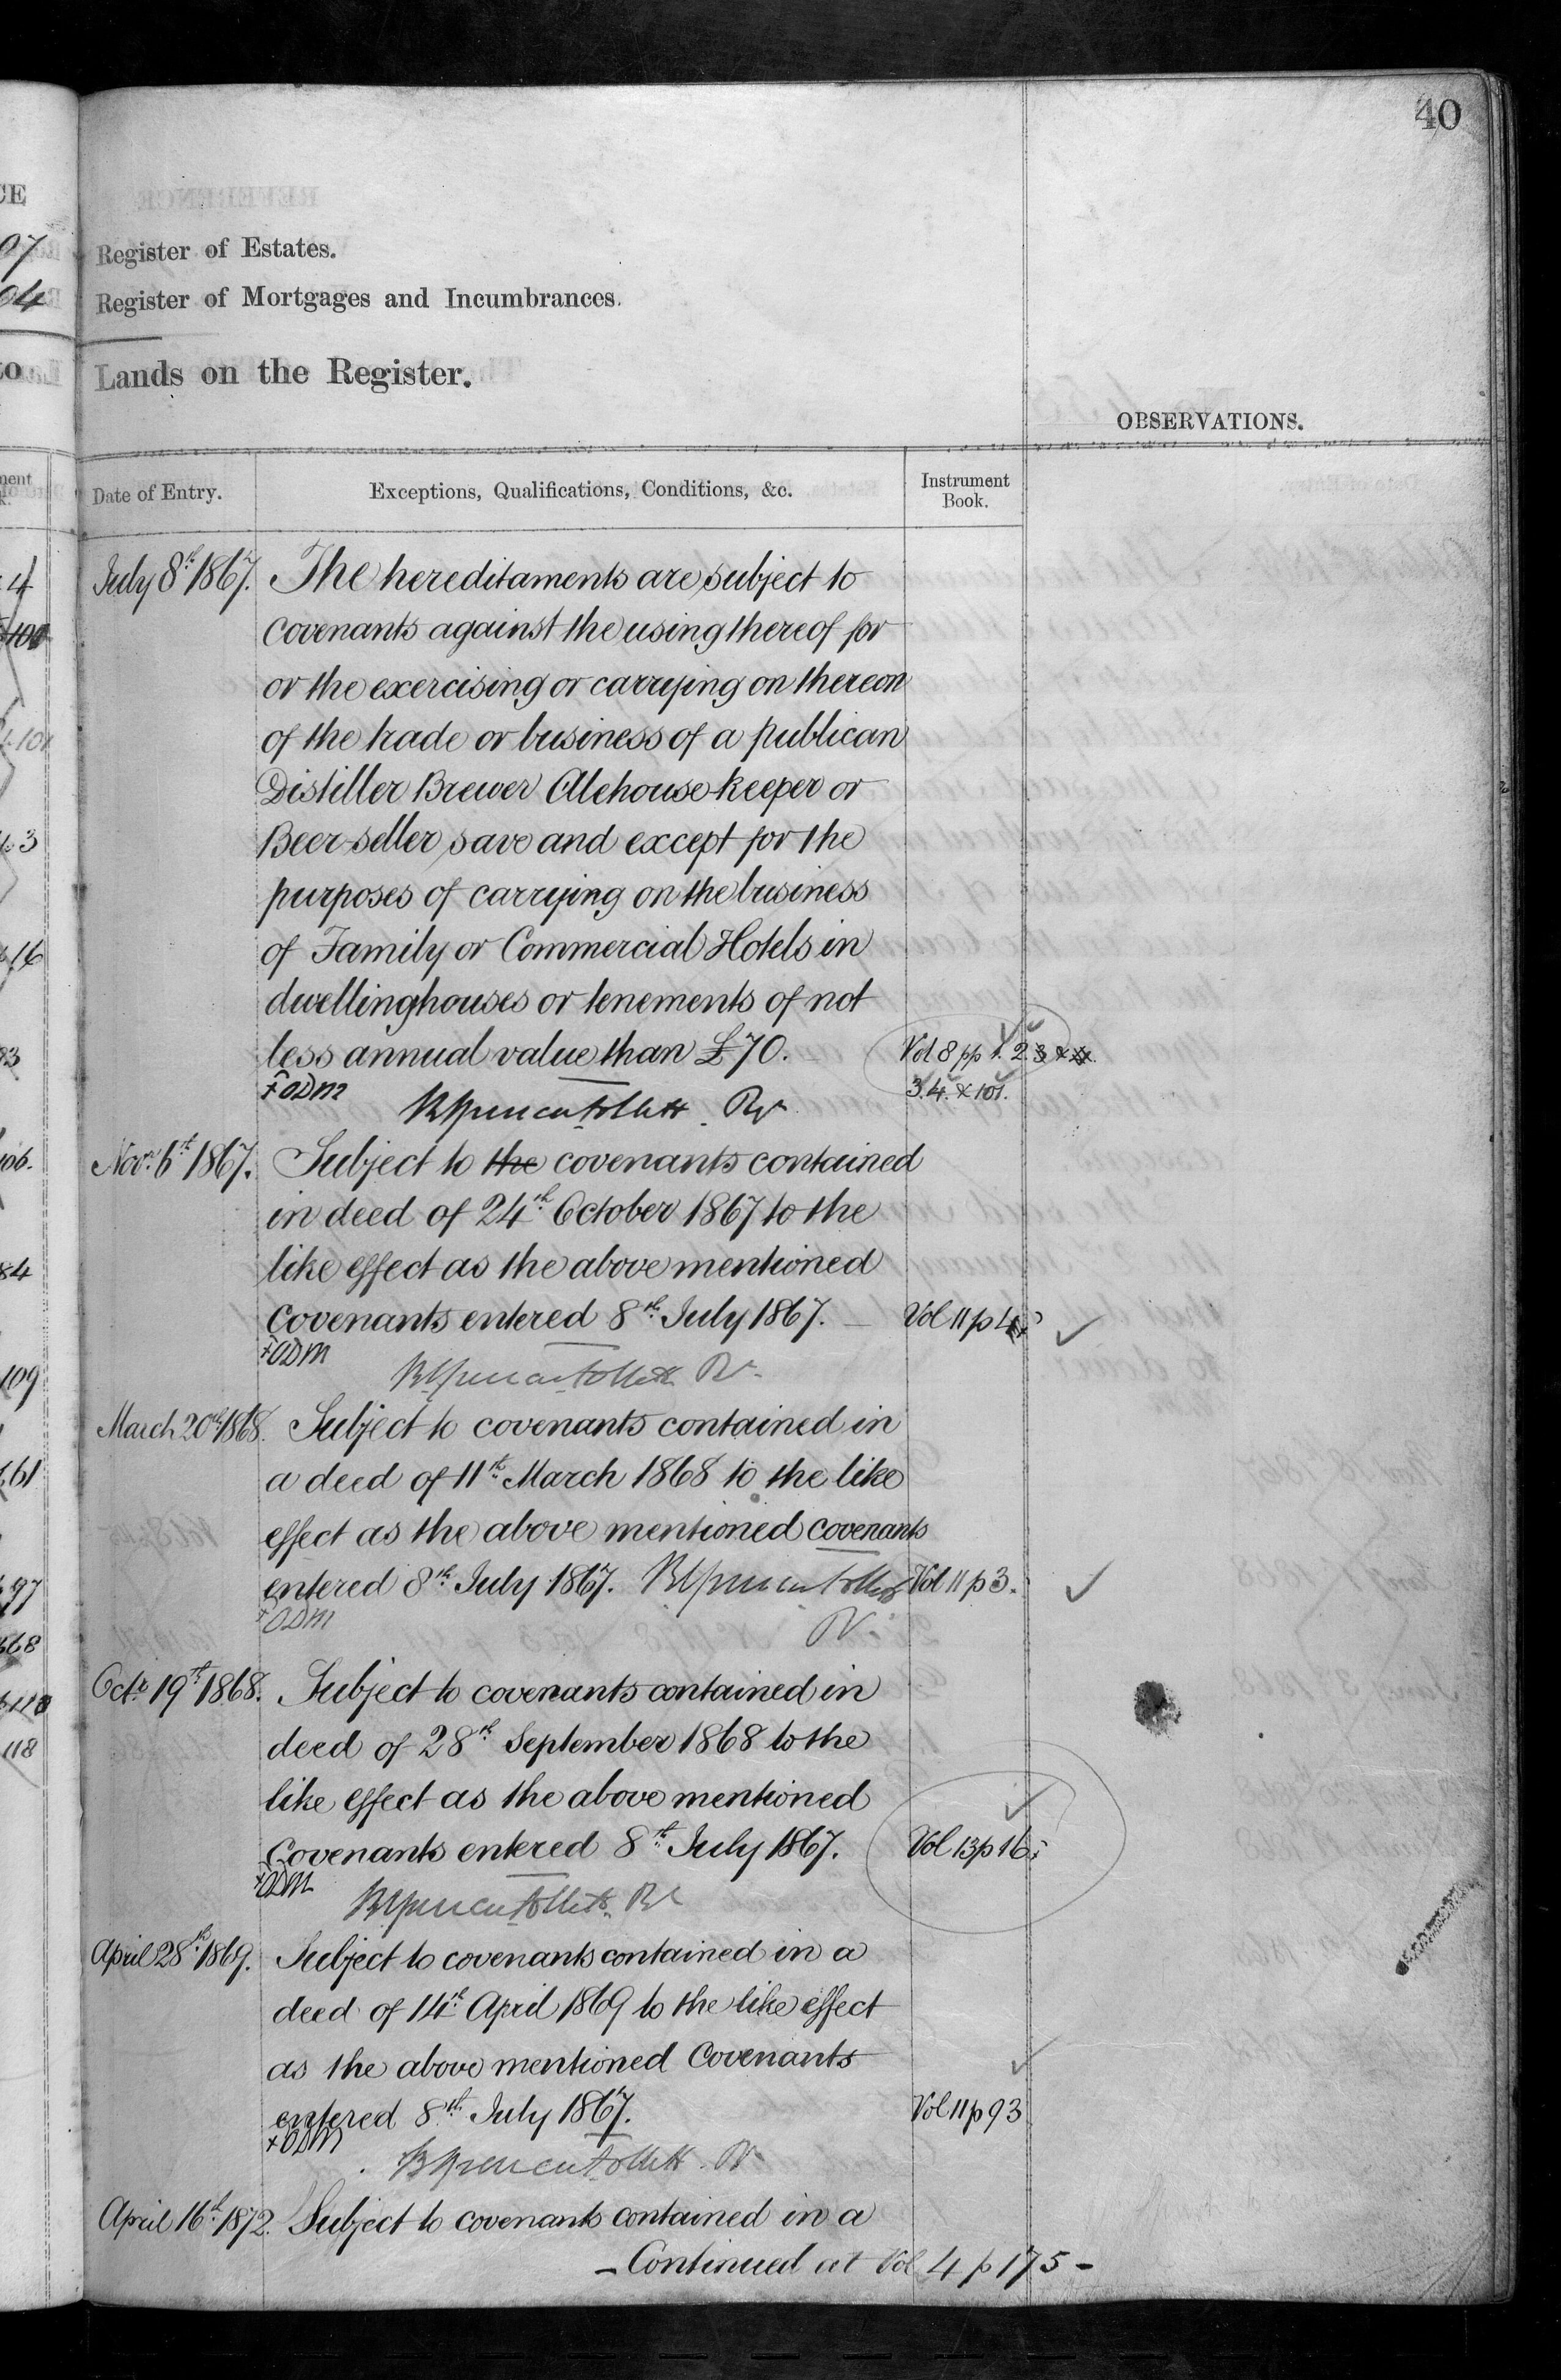 40
Register of Estates.
Register of Mortgages and Incumbrances.
Lands on the Register.
OBSERVATIONS.
Date of Entry.
Exceptions, Qualifications, Conditions, &c.
Instrument
Book.
July 8th 1867. The hereditaments are subject to
covenants against the using thereof for
or the exercising or carrying on thereon
of the trade or business of a publican
Distiller Brewer Alehouse-keeper or
Beer-seller save and except for the
purposes of carrying on the business
of Family or Commercial Hotels in
dwellinghouses or tenements of not
less annual value than £70. Vol 8 pp 1. 2.
3.4. & 101.
+ODM
Novr. 6th 1867. Subject to the covenants contained
in deed of 24th October 1867 to the
like effect as the above mentioned
Covenants entered 8th July 1867. Vol 11 p
+ODM
March 20th 1868. Subject to covenants contained in
a deed of 11th March 1868 to the like
effect as the above mentioned covenants
entered 8th July 1867. Vol 11 p 3.
+ODM
Octr. 19th 1868. Subject to covenants contained in
deed of 28th September 1868 to the
like effect as the above mentioned
Covenants entered 8th July 1867. Vol 13 p 16
+ODM
April 28th 1869. Subject to covenants contained in a
deed of 14th April 1869 to the like effect
as the above mentioned Covenants
entered 8th July 1867. Vol 11 p 93
+ODM
April 16th 1872. Subject to covenants contained in a
- Continued at Vol 4 p 175 -